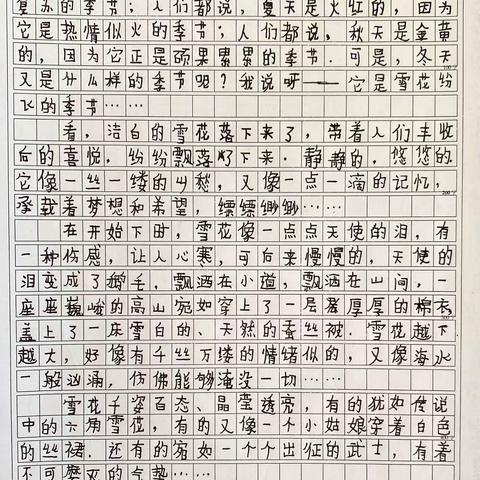 复苏的季节；人们都说，夏天是火红的，因为
它是热情似火的季节；人们都说，秋天是金黄
的，因为它正是硕果累累的季节．可是，冬天
又是什么样的季节呢？我说呀——它是雪花纷
飞的季节……
看，洁白的雪花落下来了，带着人们丰收
后的喜悦，纷纷飘落了下来．静静的，悠悠的．
它像一丝一缕的乡愁，又像一点一滴的记忆，
承载着梦想和希望，缥缥缈缈……
在开始下时，雪花像一点点天使的泪，有
一种伤感，让人心寒，可后来慢慢的，天使的
泪变成了鹅毛，飘洒在小道，飘洒在山间，一
座座巍峨的高山宛如穿上了一层层厚厚的棉衣，
盖上了一床雪白的、天然的蚕丝被．雪花越下
越大，好像有千丝万缕的情绪似的，又像海水
一般汹涌，仿佛能够淹没一切……
雪花千姿百态、晶莹透亮，有的犹如传说
中的六角雪花，有的又像一个小姑娘穿着白色
的丝裙．还有的宛如一个个出征的武士，有着
不可磨灭的气势……